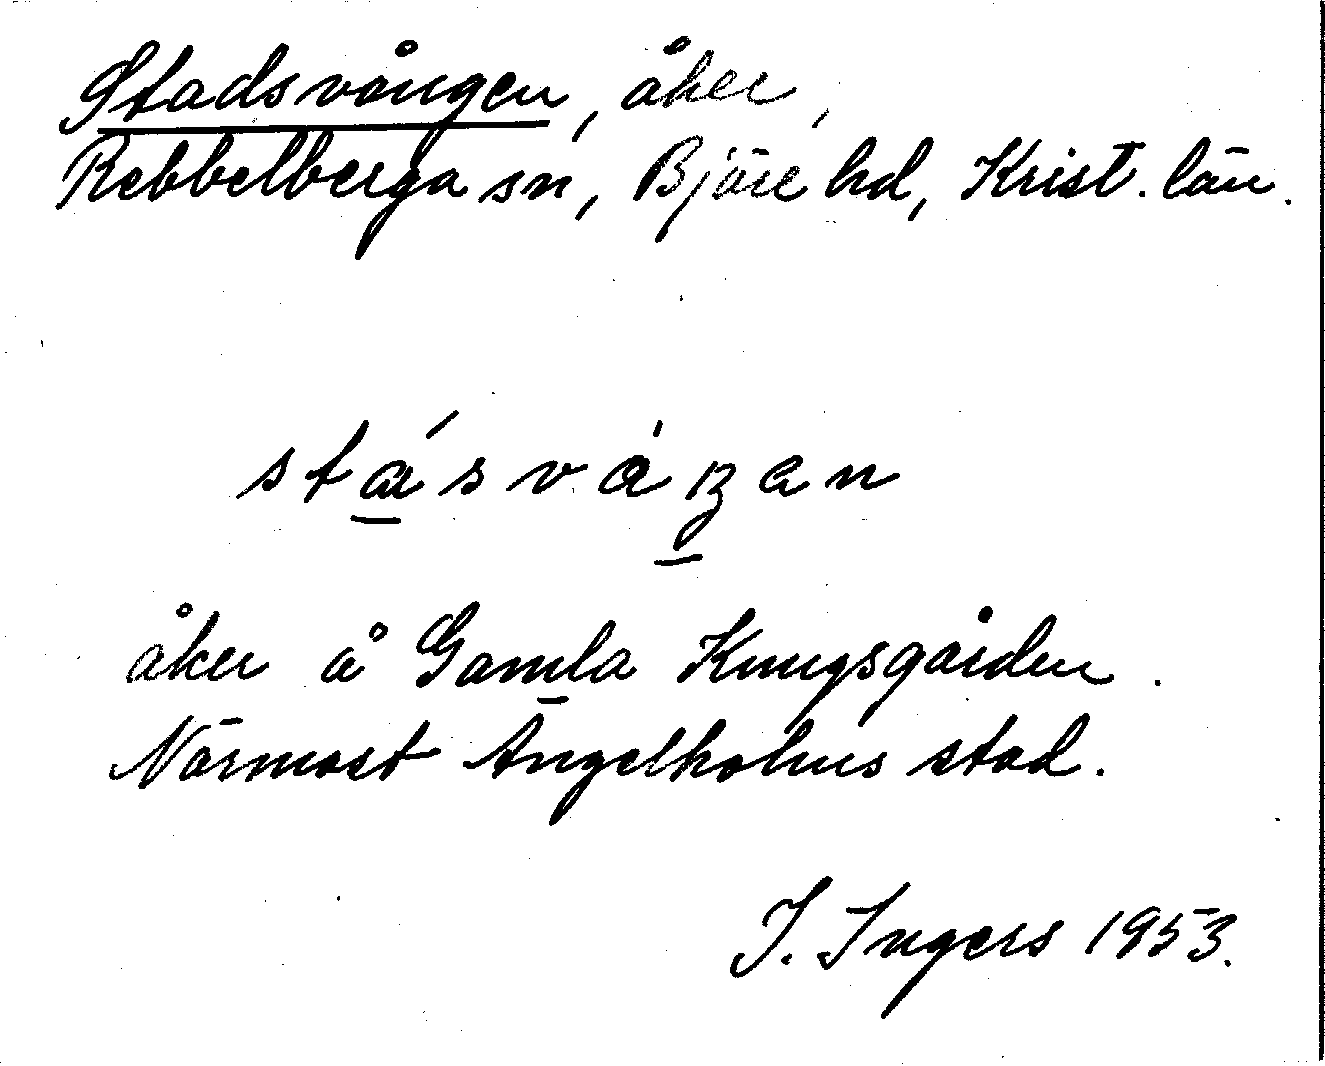 Stadsvången, åker,
Rebbelberga sn, Bjäre hd, Krist. län.
stásváŋan
åker å Gamla Kungsgården.
Närmast Ängelholms stad.
I. Ingers 1953.